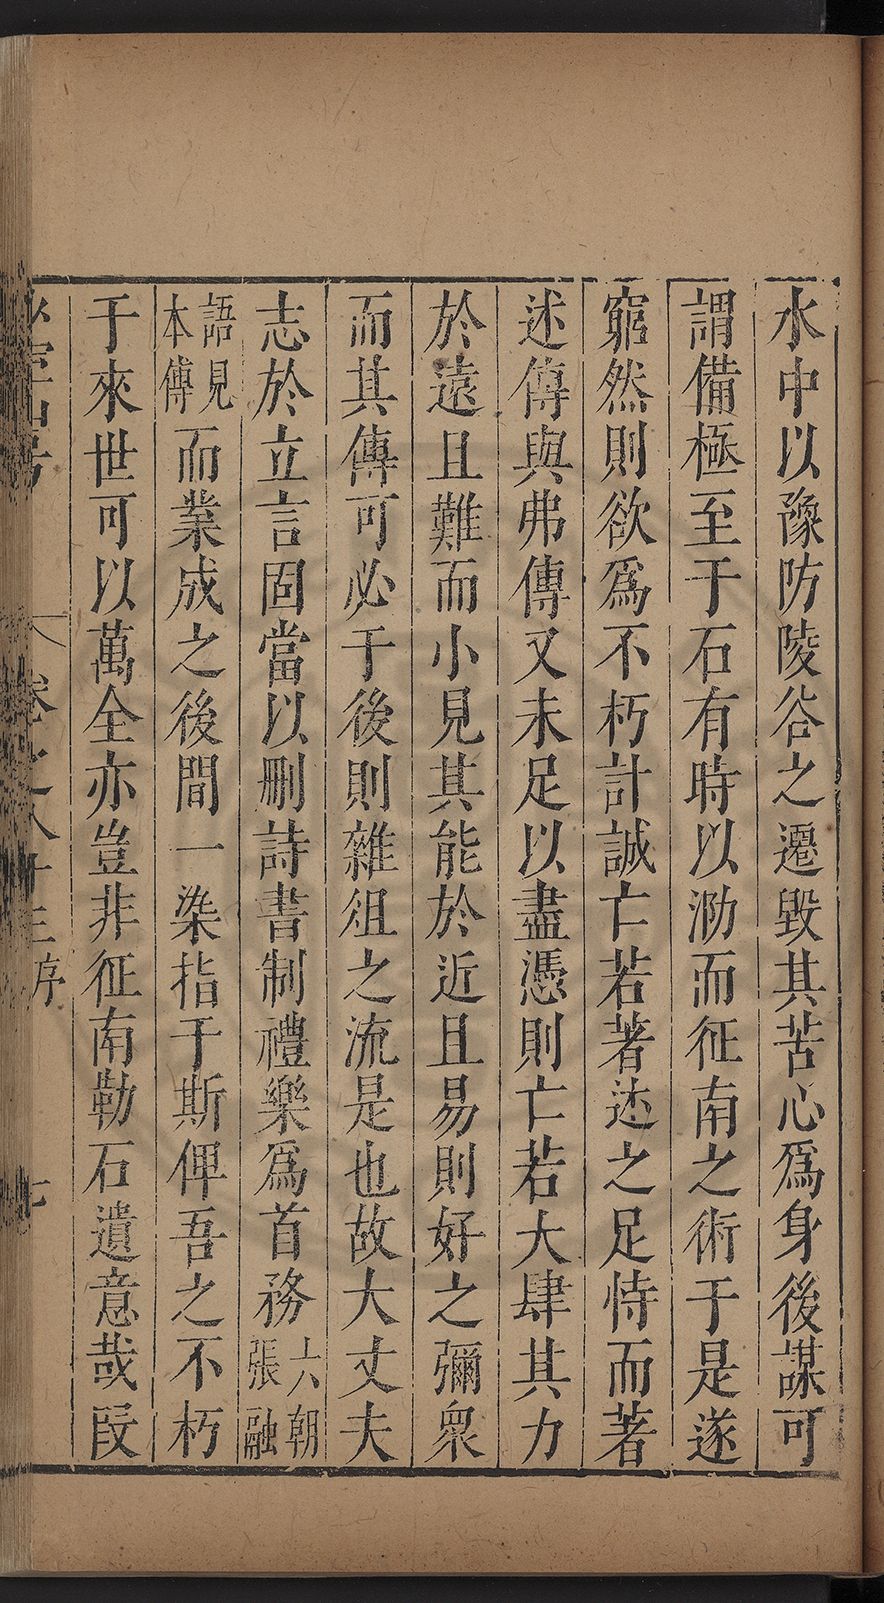 水中以豫防陵谷之遷毀其苦心爲身後謀可
謂備極至于石有時以泐而征南之術于是遂
窮然則欲爲不朽計誠亡若著述之足恃而著
述傳與弗傳又未足以盡憑則亡若大肆其力
於遠且難而小見其能於近且易則好之彌衆
而其傳可必于後則雜俎之流是也故大丈夫
志於立言固當以刪詩書制禮樂爲首務六朝張融
語見本傳而業成之後間一染指于斯俾吾之不朽
于來世可以萬全亦豈非征南勒石遺意哉段
卷之八十三序